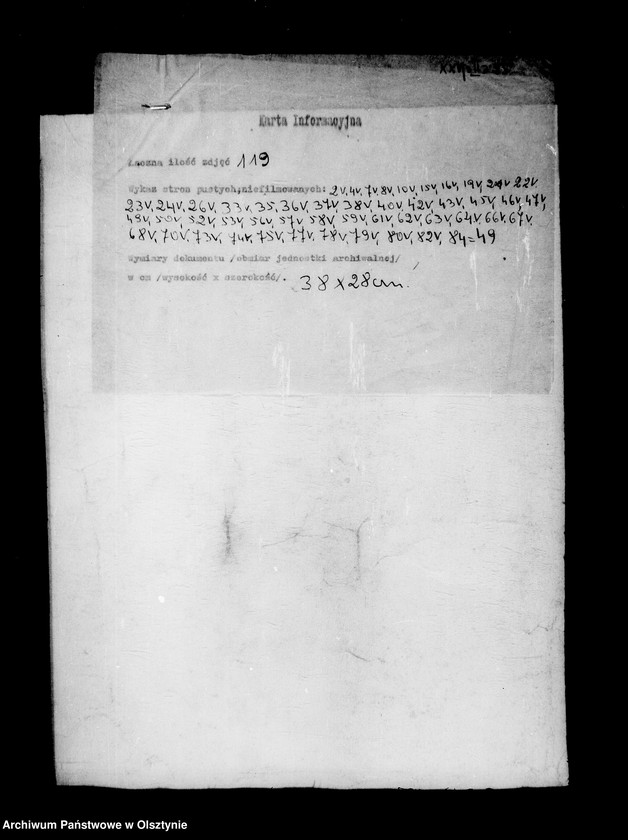 Karta Informacyjna
Łączna ilość zdjęć 119
Wykaz stron pustych,niefilmowanych: 2v, 4v, 7v, 8v, 10v, 15v, 16v, 19v, 22v,
23v, 24v, 26v, 33v, 35, 36v, 37v, 38v, 40v, 42v, 43v, 45v, 46v, 47v,
49v, 50v, 52v, 53v, 56v, 57v, 58v, 59v, 61v, 62v, 63v, 64v, 66v, 67v,
68v, 70v, 73v, 74v, 75v, 77v, 78v, 79v, 80v, 82v, 84=49
Wymiary dokumentu /obmiar jednostki archiwalnej/
w cm /wysokość x szerokość/. 38 x 28 cm.
Archiwum Państwowe w Olsztynie